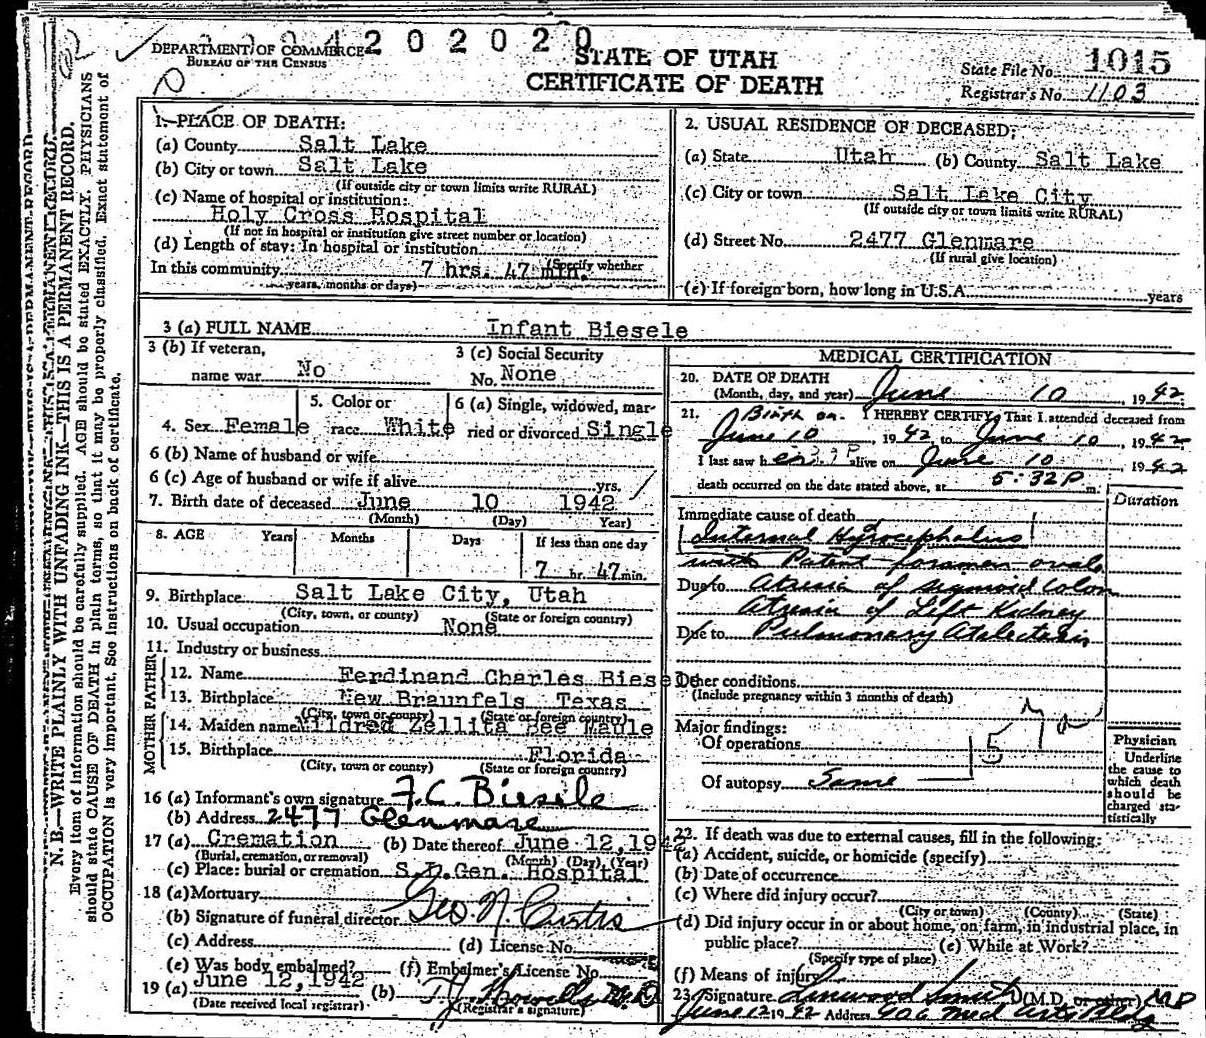 2 0 2 0 2 0
DEPARTMENT OF COMMERCE
BUREAU OF THE CENSUS
STATE OF UTAH
CERTIFICATE OF DEATH
State File No. 1015
Registrar's No. 1103
N. B.—WRITE PLAINLY WITH UNFADING INK—THIS IS A PERMANENT RECORD.
Every item of information should be carefully supplied. AGE should be stated EXACTLY. PHYSICIANS
should state CAUSE OF DEATH in plain terms, so that it may be properly classified. Exact statement of
OCCUPATION is very important. See instructions on back of certificate.
1. PLACE OF DEATH:
(a) County Salt Lake
(b) City or town Salt Lake
(If outside city or town limits write RURAL)
(c) Name of hospital or institution:
Holy Cross Hospital
(If not in hospital or institution give street number or location)
(d) Length of stay: In hospital or institution
(Specify whether
In this community 7 hrs. 47 min.
years, months or days)
2. USUAL RESIDENCE OF DECEASED:
(a) State Utah (b) County Salt Lake
(c) City or town Salt Lake City
(If outside city or town limits write RURAL)
(d) Street No. 2477 Glenmare
(If rural give location)
(e) If foreign born, how long in U.S.A. years
3 (a) FULL NAME Infant Biesele
3 (b) If veteran,
name war No
3 (c) Social Security
No. None
4. Sex Female
5. Color or
race White
6 (a) Single, widowed, mar-
ried or divorced Single
6 (b) Name of husband or wife
6 (c) Age of husband or wife if alive yrs.
7. Birth date of deceased June 10 1942
(Month) (Day) (Year)
8. AGE Years Months Days If less than one day
7 hr. 47 min.
9. Birthplace Salt Lake City, Utah
(City, town, or county) (State or foreign country)
10. Usual occupation None
11. Industry or business
FATHER
12. Name Ferdinand Charles Biesele
13. Birthplace New Braunfels Texas
(City, town or county) (State or foreign country)
MOTHER
14. Maiden name Mildred Zellita Bee Maule
15. Birthplace Florida
(City, town or county) (State or foreign country)
16 (a) Informant's own signature F. C. Biesele
(b) Address 2477 Glenmare
17 (a) Cremation (b) Date thereof June 12, 1942
(Burial, cremation, or removal) (Month) (Day), (Year)
(c) Place: burial or cremation S.L.Gen. Hospital
18 (a) Mortuary
(b) Signature of funeral director Geo. N. Curtis
(c) Address (d) License No.
(e) Was body embalmed? (f) Embalmer's License No.
19 (a) June 12, 1942 (b) T. J. Howells
(Date received local registrar) (Registrar's signature)
MEDICAL CERTIFICATION
20. DATE OF DEATH
(Month, day, and year) June 10, 1942
21. Birth on. I HEREBY CERTIFY, That I attended deceased from
June 10, 1942 to June 10, 1942
I last saw her alive on June 10 1942
death occurred on the date stated above, at 5:32 P m.
Duration
Immediate cause of death
Internal Hydrocephalus
with Patent foramen ovale
Due to Atresia of sigmoid colon
Atresia of Left Kidney
Due to Pulmonary Atalectasis
Other conditions
(Include pregnancy within 3 months of death)
Major findings:
Of operations
157a
Of autopsy Same
Physician
Underline
the cause to
which death
should be
charged sta-
tistically
22. If death was due to external causes, fill in the following:
(a) Accident, suicide, or homicide (specify)
(b) Date of occurrence
(c) Where did injury occur?
(City or town) (County) (State)
(d) Did injury occur in or about home, on farm, in industrial place, in
public place? (e) While at Work?
(Specify type of place)
(f) Means of injury
23. Signature Linwood Smith (M.D. or other) MD
June 12 1942 Address 906 Med Arts Bldg